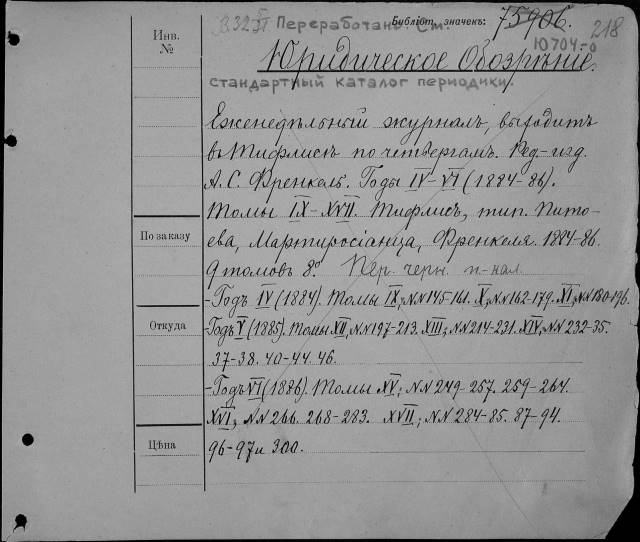 В 32 5/VI Переработано. См. Библіот. значекъ: 75906. 218
Инв. №
Ю704-о
Юридическое Обозрѣніе.
стандартный каталог периодики.
Еженедѣльный журналъ, выходитъ
въ Тифлисѣ по четвергамъ. Ред.-изд.
А. С. Френкель. Годы IV-VI (1884-86).
Томы IX-XVII. Тифлисъ, тип. Пито-
По заказу
ева, Мартиросіанца, Френкеля. 1884-86.
9 томовъ 8º. Пер. черн. п-кал
- Годъ IV (1884). Томы IX; NN 145-161. X; NN 162-179. XI; NN 180-196.
Откуда
- Годъ V (1885). Томы XII, NN 197-213. XIII; NN 214-231. XIV; NN 232-35.
37-38. 40-44. 46.
- Годъ VI (1886). Томы XV; NN 249-257. 259-264.
XVI; NN 266. 268-283. XVII; NN 284-85. 87-94.
Цѣна
96-97 и 300.